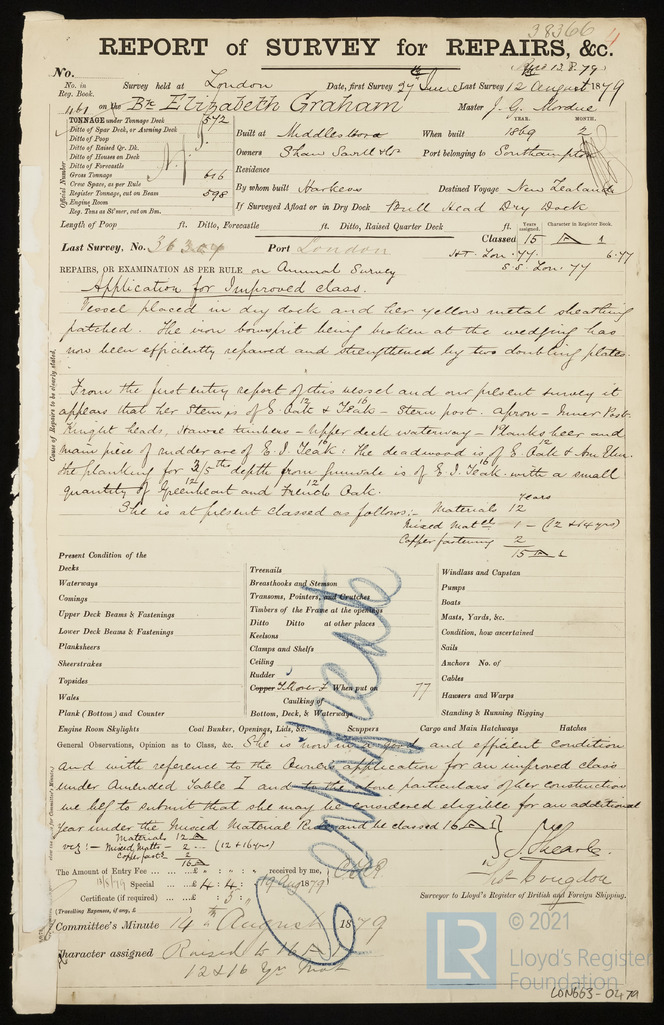 38366
REPORT of SURVEY for REPAIRS, &c.
No.
No. in Reg. Book. Survey held at London Date, first Survey 27 June Last Survey 12 August 1879
461 on the Bk Elizabeth Graham Master J. G. Mordue
TONNAGE under Tonnage Deck 572
Ditto of Spar Deck, or Awning Deck
Ditto of Poop
Ditto of Raised Qr. Dk.
Ditto of Houses on Deck
Ditto of Forecastle
Gross Tonnage 616
Crew Space, as per Rule
Register Tonnage, cut on Beam 598
Engine Room
Reg. Tons as St'mer, cut on Bm.
Official Number
YEAR. MONTH.
Built at Middlesboro When built 1869 2
Owners Shaw Savill & Co Port belonging to Southampton
Residence
By whom built Harkess Destined Voyage New Zealand
If Surveyed Afloat or in Dry Dock Bull Head Dry Dock
Length of Poop ft. Ditto, Forecastle ft. Ditto, Raised Quarter Deck ft. Years assigned. Character in Register Book.
Last Survey, No. 36304 Port London Classed 15 A 1
HT. Lon. 77. 6.77
S.S. Lon. 77
REPAIRS, OR EXAMINATION AS PER RULE on Annual Survey
Application for Improved class.
Vessel placed in dry dock and her yellow metal sheathing
patched. The iron bowsprit being broken at the wedging has
now been efficiently repaired and strengthened by two doubling plates.
Cause of Repairs to be clearly stated.
From the first entry report of this vessel and our present survey it
appears that her Stem is of E. Oak & Teak - Stern post. apron - Inner Post
Knight heads, Hawse timbers - Upper deck waterway - Planksheer and
main piece of rudder are of E. I. Teak: The deadwood is of E. Oak & Am. Elm.
the planking for 3/5ths depth from gunwale is of E. I. Teak. with a small
quantity of Greenheart and French Oak.
She is at present classed as follows:- Years
Materials 12
Mixed Matls 1 - (12 & 14 yrs)
Copper fastening 2
15 A 1
Present Condition of the
Decks
Waterways
Comings
Upper Deck Beams & Fastenings
Lower Deck Beams & Fastenings
Planksheers
Sheerstrakes
Topsides
Wales
Plank (Bottom) and Counter
Treenails
Breasthooks and Stemson
Transoms, Pointers, and Crutches
Timbers of the Frame at the openings
Ditto Ditto at other places
Keelsons
Clamps and Shelfs
Ceiling
Rudder
Copper When put on 77
Caulking of
Bottom, Deck, & Waterways
Windlass and Capstan
Pumps
Boats
Masts, Yards, &c.
Condition, how ascertained
Sails
Anchors No. of
Cables
Hawsers and Warps
Standing & Running Rigging
Engine Room Skylights Coal Bunker, Openings, Lids, &c. Scuppers Cargo and Main Hatchways Hatches
General Observations, Opinion as to Class, &c. She is now in a good and efficient condition
and with reference to the Owners application for an improved class
under Amended Table I and to the above particulars of her construction
we beg to submit that she may be considered eligible for an additional
year under the Mixed Material Rule and be classed 16 A 1
viz:- Materials 12 A
Mixed Matls - 2 (12 & 16 yrs)
Copper fastg 2
16 A
The Amount of Entry Fee £ : : received by me,
13/8/79 Special £ 4 : 4 : 19 Aug 1879
Certificate (if required) : 5 :
(Travelling Expenses, if any, £ )
Surveyor to Lloyd's Register of British and Foreign Shipping.
Committee's Minute 14th August 1879
Character assigned Raised to 16 A 1
12 & 16 Yrs Mat
© 2021
LR
Lloyd's Register
Foundation
LON663-0479